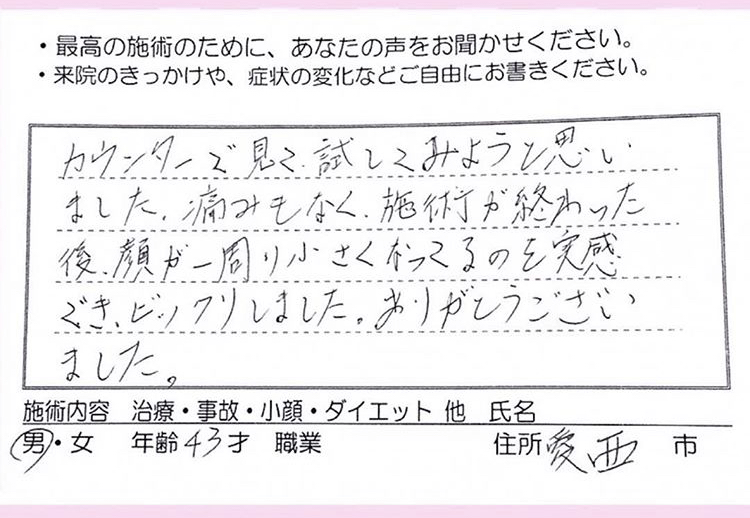 ・最高の施術のために、あなたの声をお聞かせください。
・来院のきっかけや、症状の変化などご自由にお書きください。
カウンターで見て、試してみようと思い
ました。痛みもなく、施術が終わった
後、顔が一周り小さくなってるのを実感
でき、ビックリしました。ありがとうござい
ました。
施術内容 治療・事故・小顔・ダイエット 他 氏名
男・女 年齢43才 職業 住所 愛西 市